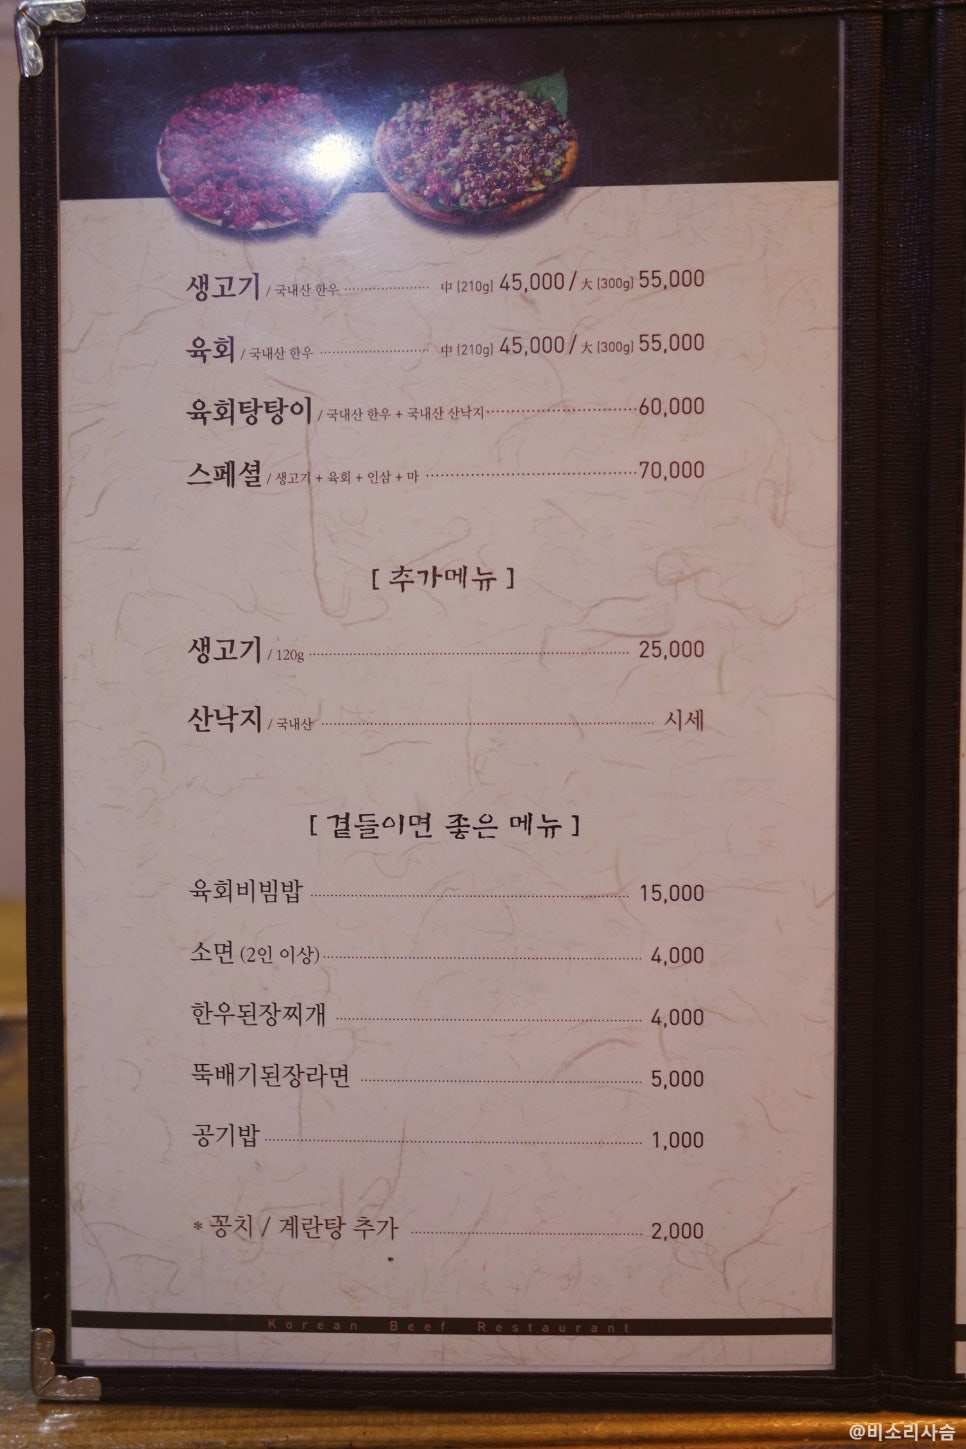 생고기 / 국내산 한우 ···················· 中 (210g) 45,000 / 大 (300g) 55,000
육회 / 국내산 한우 ·························· 中 (210g) 45,000 / 大 (300g) 55,000
육회탕탕이 / 국내산 한우 + 국내산 산낙지 ··························· 60,000
스페셜 / 생고기 + 육회 + 인삼 + 마 ······································ 70,000
[ 추가메뉴 ]
생고기 / 120g ·························································· 25,000
산낙지 / 국내산 ························································ 시세
[ 곁들이면 좋은 메뉴 ]
육회비빔밥 ···························································· 15,000
소면 (2인 이상) ························································ 4,000
한우된장찌개 ·························································· 4,000
뚝배기된장라면 ························································ 5,000
공기밥 ································································ 1,000
* 꽁치 / 계란탕 추가 ··················································· 2,000
Korean Beef Restaurant
@비소리사슴